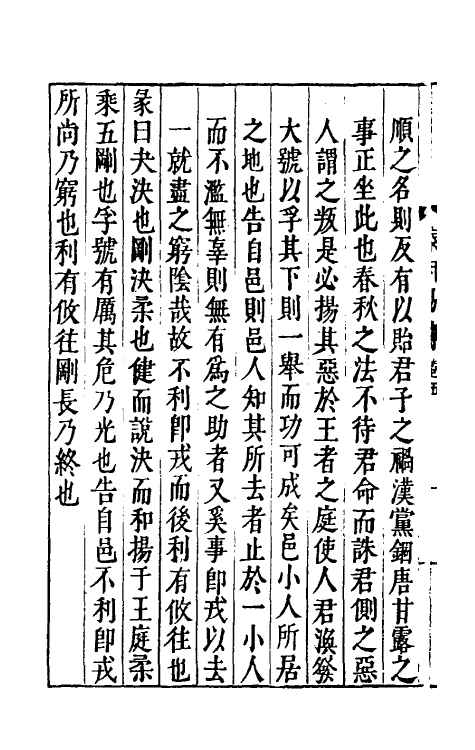 順之名則反有以貽君子之禍漢黨錮唐甘露之
事正坐此也春秋之法不待君命而誅君側之惡
人謂之叛是必揚其惡於王者之庭使人君渙發
大號以孚其下則一舉而功可成矣邑小人所居
之地也告自邑則邑人知其所去者止於一小人
而不濫無辜則無有為之助者又奚事卽戎以去
一就盡之窮陰哉故不利卽戎而後利有攸往也
彖曰夬決也剛決柔也健而說決而和揚于王庭柔
乘五剛也孚號有厲其危乃光也告自邑不利卽戎
所尚乃窮也利有攸往剛長乃終也